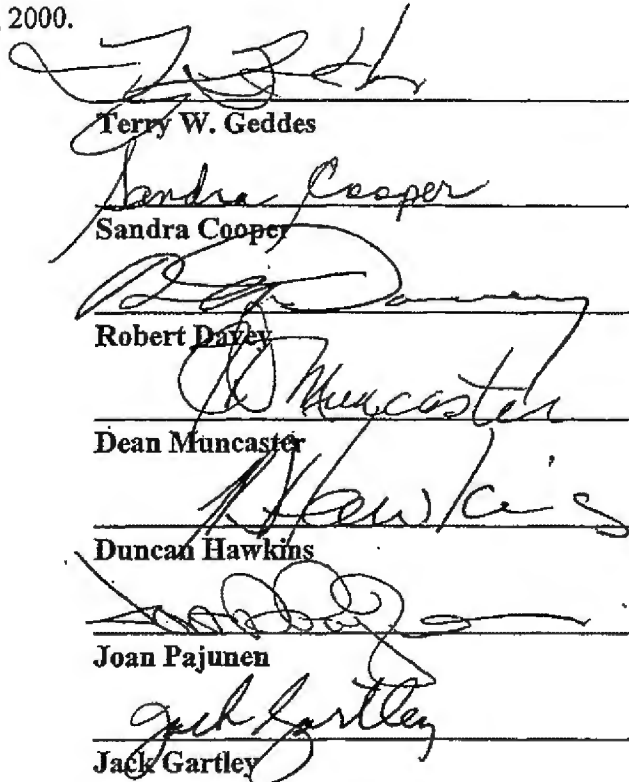 2000.
Terry W. Geddes
Sandra Cooper
Sandra Cooper
Robert Davey
Muncaster
Dean Muncaster
Hawkins
Duncan Hawkins
Joan Pajunen
Jack Gartley
Jack Gartley